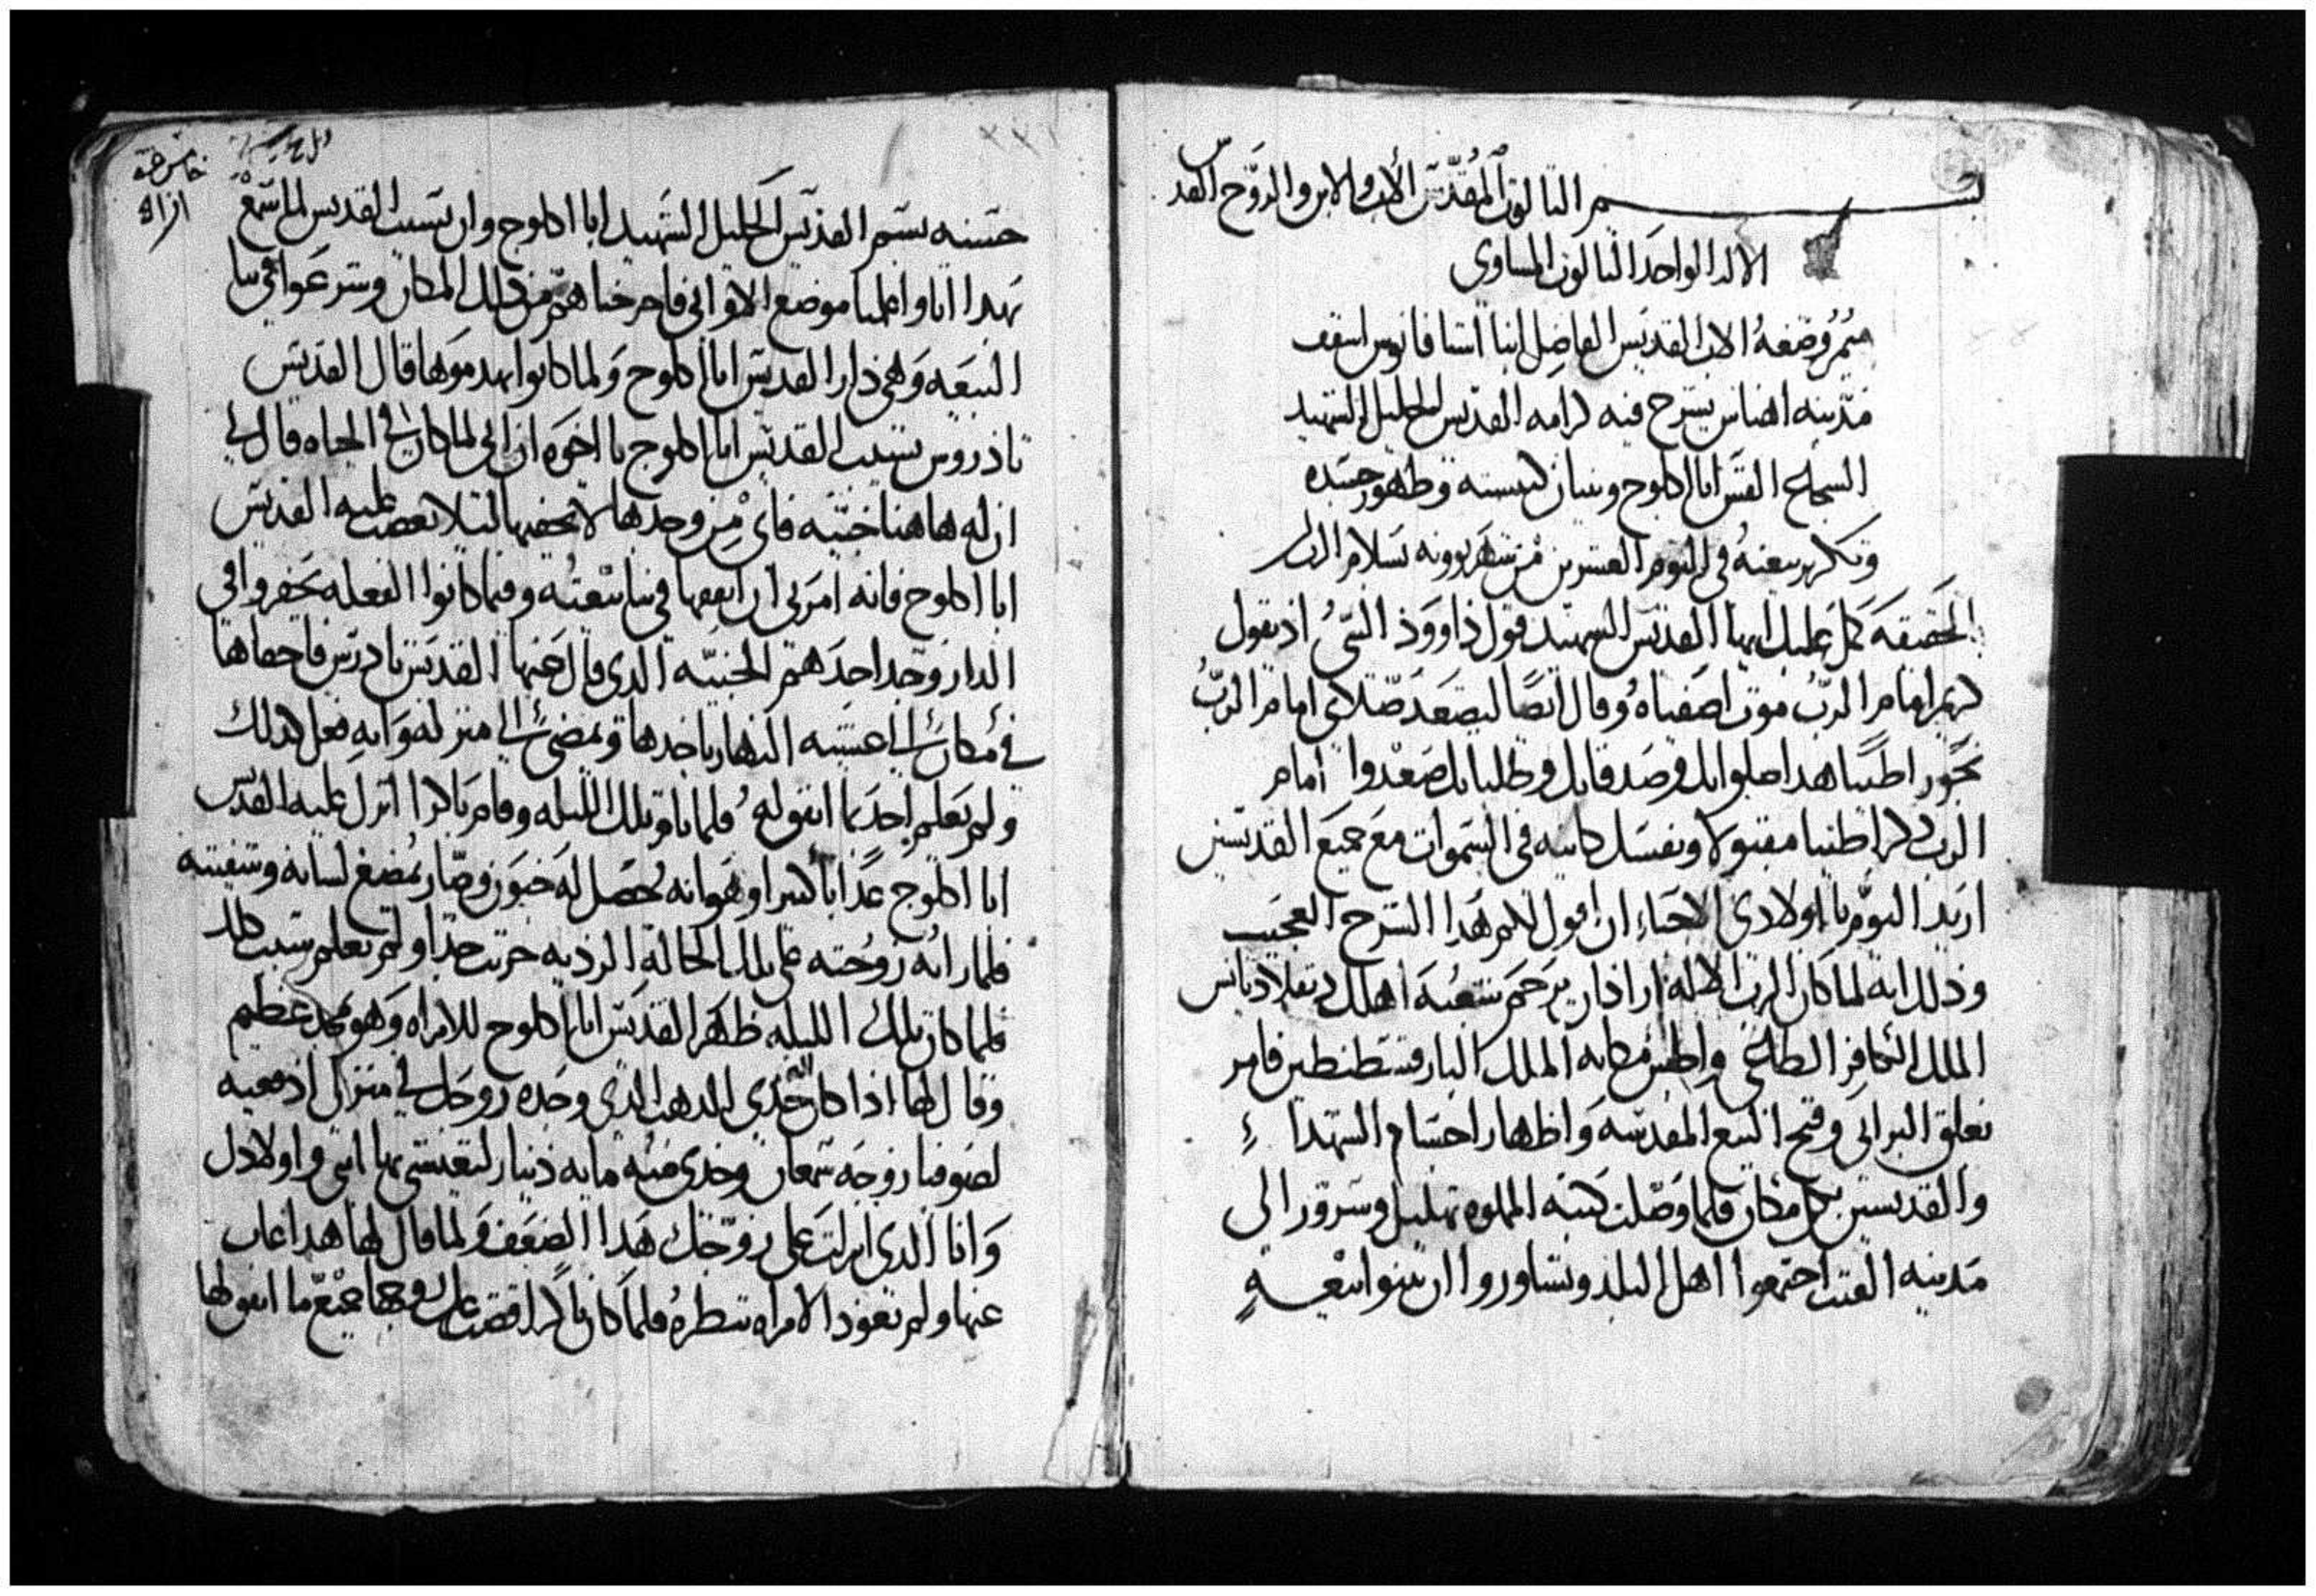 بسم الثالوث المقدس الاب والابن والروح القدس
الاله الواحد الثالوث المساوى
ميمر وضعه الاب القديس الفاضل انبا استافانوس اسقف
مدينه اهناس يشرح فيه كرامه القديس الجليل الشهيد
القس ابا اكلوج وبنيان كنيسته وظهور جسده
وتكريز بيعته فى اليوم العشرين من شهر بوونه بسلام الرب
بالحقيقه كمل عليك ايها القديس الشهيد قول داوود النبى اذ يقول
كريم امام الرب موت اصفياه وقال ايضا ليصعد صلاتى امام الرب
بخور اطيبا هدا صلواتك وصدقاتك وطلباتك صعدوا امام
الرب كراطيبا مقبولا ونفسك كاينه فى السموات مع جميع القديسين
اريد اليوم يا اولادى الاحباء ان اقول لكم هدا الشرح العجيب
وذلك انه لما كان الرب الاله اراد ان يرحم شعبه اهلك دقلاديانس
الملك الكافر واجلس مكانه الملك البار قسطنطين فامر
بغلق البرابى وفتح البيع المقدسه واظهار اجسام الشهداء
والقديسين بكل مكان فلما وصلت كتبه المملوه تهليل وسرور الى
مدينه الفنت اجتمعوا اهل البلد وتشاوروا ان يبنوا بيعه
حسنه بسم القديس الجليل الشهيد ابا اكلوج وان نسيب القديس لما سمع
بهدا اتا واعلمنا موضع الاوانى فاخرجناهم من ذلك المكان وشرعوا فى بنا
البيعه وهى دار القديس ابا اكلوج ولما كانوا يهدموها قال القديس
تادروس نسيب القديس ابا اكلوج يا اخوه ان ابى لما كان فى الحياه قال لى
ان له هاهنا خبيه فاى من وجدها لا يخفيها ليلا يغضب عليه القديس
ابا اكلوج فانه امرنى ان انفقها فى بنا بيعته وفيما كانوا الفعله يحفروا فى
الدار وجد احدهم الخبيه الدى قال عنها القديس تادرس فاخفاها
فى مكان الى عشيه النهار ياخدها ويمضى الى منزله وانه فعل كدلك
ولم يعلم احد بما اتفق له فلما بات تلك الليله وقام باكرا انزل عليه القديس
ابا اكلوج عذابا كبيرا وهو انه يحصل له وصار يمضغ لسانه وشفتيه
فلما راته زوجته على تلك الحاله الرديه حزنت جدا ولم تعلم سبب ذلك
فلما كان تلك الليله ظهر القديس ابا اكلوج للامراه وهو بمجد عظيم
وقال لها اذا كان خدى الدهب الدى وجده زوجك فى منزلى ادفعيه
لصوفيا زوجه شمعان وخدى منه مايه دينار لتعيشى بها انتى واولادك
وانا الدى انزلت على زوجك هدا الضعف ولما قال لها هدا غاب
عنها ولم تعود الامراه تنظره فلما كان باكرا قصت على زوجها جميع ما اتفق لها